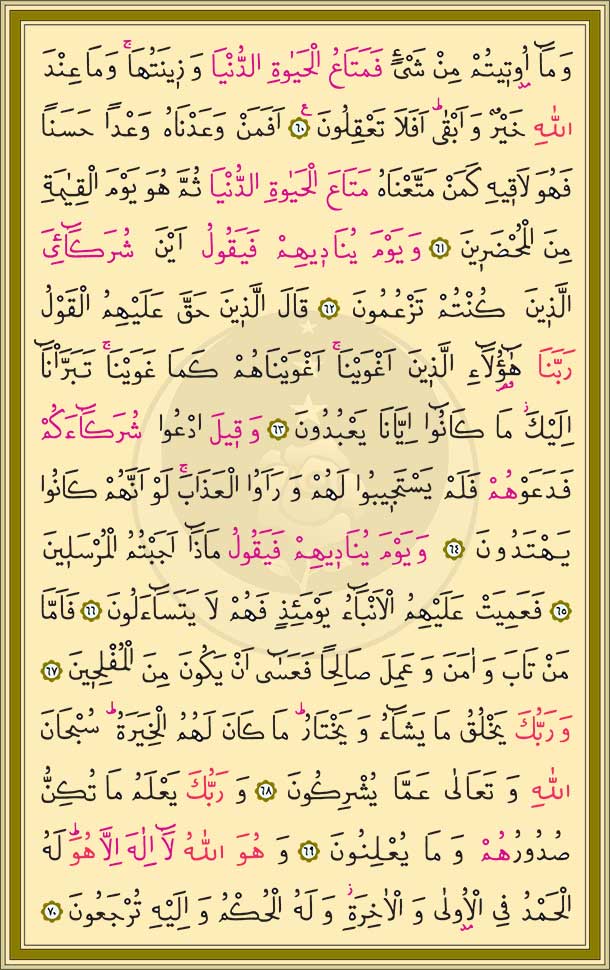 وَمَٓا اُو۫ت۪يتُمْ مِنْ شَيْءٍ فَمَتَاعُ الْحَيٰوةِ الدُّنْيَا وَز۪ينَتُهَاۚ وَمَا عِنْدَ
اللّٰهِ خَيْرٌ وَاَبْقٰىۜ اَفَلَا تَعْقِلُونَ۟ ﴿٦٠﴾ اَفَمَنْ وَعَدْنَاهُ وَعْداً حَسَناً
فَهُوَ لَاق۪يهِ كَمَنْ مَتَّعْنَاهُ مَتَاعَ الْحَيٰوةِ الدُّنْيَا ثُمَّ هُوَ يَوْمَ الْقِيٰمَةِ
مِنَ الْمُحْضَر۪ينَ ﴿٦١﴾ وَيَوْمَ يُنَاد۪يهِمْ فَيَقُولُ اَيْنَ شُرَكَٓائِيَ
الَّذ۪ينَ كُنْتُمْ تَزْعُمُونَ ﴿٦٢﴾ قَالَ الَّذ۪ينَ حَقَّ عَلَيْهِمُ الْقَوْلُ
رَبَّنَا هٰٓؤُ۬لَٓاءِ الَّذ۪ينَ اَغْوَيْنَاۚ اَغْوَيْنَاهُمْ كَمَا غَوَيْنَاۚ تَبَرَّأْنَٓا
اِلَيْكَۘ مَا كَانُٓوا اِيَّانَا يَعْبُدُونَ ﴿٦٣﴾ وَق۪يلَ ادْعُوا شُرَكَٓاءَكُمْ
فَدَعَوْهُمْ فَلَمْ يَسْتَج۪يبُوا لَهُمْ وَرَاَوُا الْعَذَابَۚ لَوْ اَنَّهُمْ كَانُوا
يَهْتَدُونَ ﴿٦٤﴾ وَيَوْمَ يُنَاد۪يهِمْ فَيَقُولُ مَاذَٓا اَجَبْتُمُ الْمُرْسَل۪ينَ
﴿٦٥﴾ فَعَمِيَتْ عَلَيْهِمُ الْاَنْبَٓاءُ يَوْمَئِذٍ فَهُمْ لَا يَتَسَٓاءَلُونَ ﴿٦٦﴾ فَاَمَّا
مَنْ تَابَ وَاٰمَنَ وَعَمِلَ صَالِحاً فَعَسٰٓى اَنْ يَكُونَ مِنَ الْمُفْلِح۪ينَ ﴿٦٧﴾
وَرَبُّكَ يَخْلُقُ مَا يَشَٓاءُ وَيَخْتَارُۜ مَا كَانَ لَهُمُ الْخِيَرَةُۜ سُبْحَانَ
اللّٰهِ وَتَعَالٰى عَمَّا يُشْرِكُونَ ﴿٦٨﴾ وَرَبُّكَ يَعْلَمُ مَا تُكِنُّ
صُدُورُهُمْ وَمَا يُعْلِنُونَ ﴿٦٩﴾ وَهُوَ اللّٰهُ لَٓا اِلٰهَ اِلَّا هُوَۜ لَهُ
الْحَمْدُ فِي الْاُو۫لٰى وَالْاٰخِرَةِۘ وَلَهُ الْحُكْمُ وَاِلَيْهِ تُرْجَعُونَ ﴿٧٠﴾